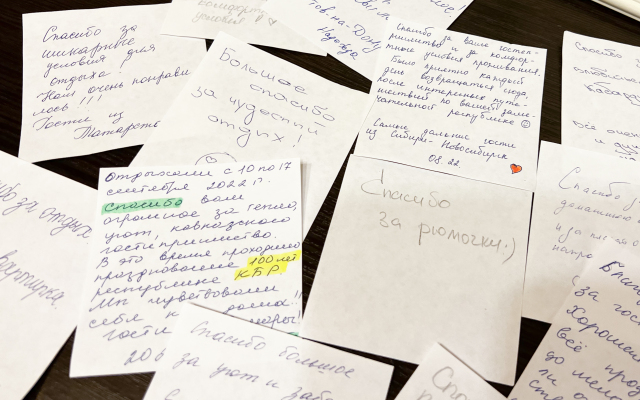 Спасибо за
шикарные
условия для
отдыха!
Нам очень понрави
лось!!!
Гости из
Татарсть
условия
тов-на-Дону
Надежда
Большое
спасибо
за чудесный
отдых!
Спасибо за ваше гостеп-
риимство и за комфор-
тные условия проживания.
Было приятно каждый
день возвращаться сюда,
после интересных путе-
шествий по вашей заме-
чательной республике
Самые дальние гости
из Сибири-Новосибирск
08.22
Отдыхаем с 10 по 17
сентября 2022 г.
Спасибо вам
огромное за тепло,
уют, кавказского
гостеприимство.
В это время проходило
празднование 100 лет
республике КБР.
Мы чувствовали
себя к дома!!
гости
206
Спасибо
за рюмочки:)
за отдых
Спасибо большое
за уют и забо
Спасибо
Все очен
и
Спасибо
за гос
Хороше
всё про
до мело
Спо